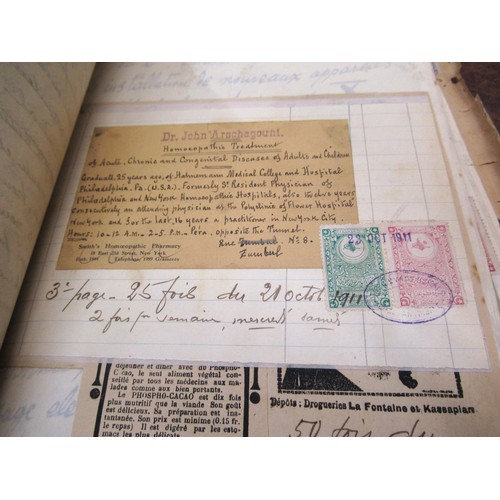 installation de nouveaux appareils
Dr. John Arschagouni.
Homoeopathic Treatment
of Acute, Chronic and Congenital Diseases of Adults and Children
Graduate, 25 years ago, of Hahnemann Medical College and Hospital
Philadelphia. Pa. (U.S.A.), Formerly Resident Physician of
Philadelphia and New York Homoeopathic Hospitals, also twelve years
consecutively an attending physician at the Polyclinic of Flower Hospital
New York and for the last 16 years a practitioner in New York City.
Hours: 10-12 A.M. 2-5 P.M. - Pera, opposite the Tunnel.
Rue Zumbul No 8.
Zumbul
Smith's Homeopathic Pharmacy
New York
23 OCT 1911
3e page - 25 fois du 21 Octob 1911
2 fois par semain, mercredi samedi
déjeuner et dîner avec du Phospho-
Cacao, le seul aliment végétal con-
seillé par tous les médecins aux ma-
lades comme aux bien portants.
Le PHOSPHO-CACAO est dix fois
plus nutritif que la viande Son goût
est délicieux. Sa préparation est ins-
tantanée. Son prix est minime (0.15 fr.
le repas) Il est digéré par les esto-
macs les plus délicats.
Dépôts: Drogueries La Fontaine et Kassapian
50 fois du